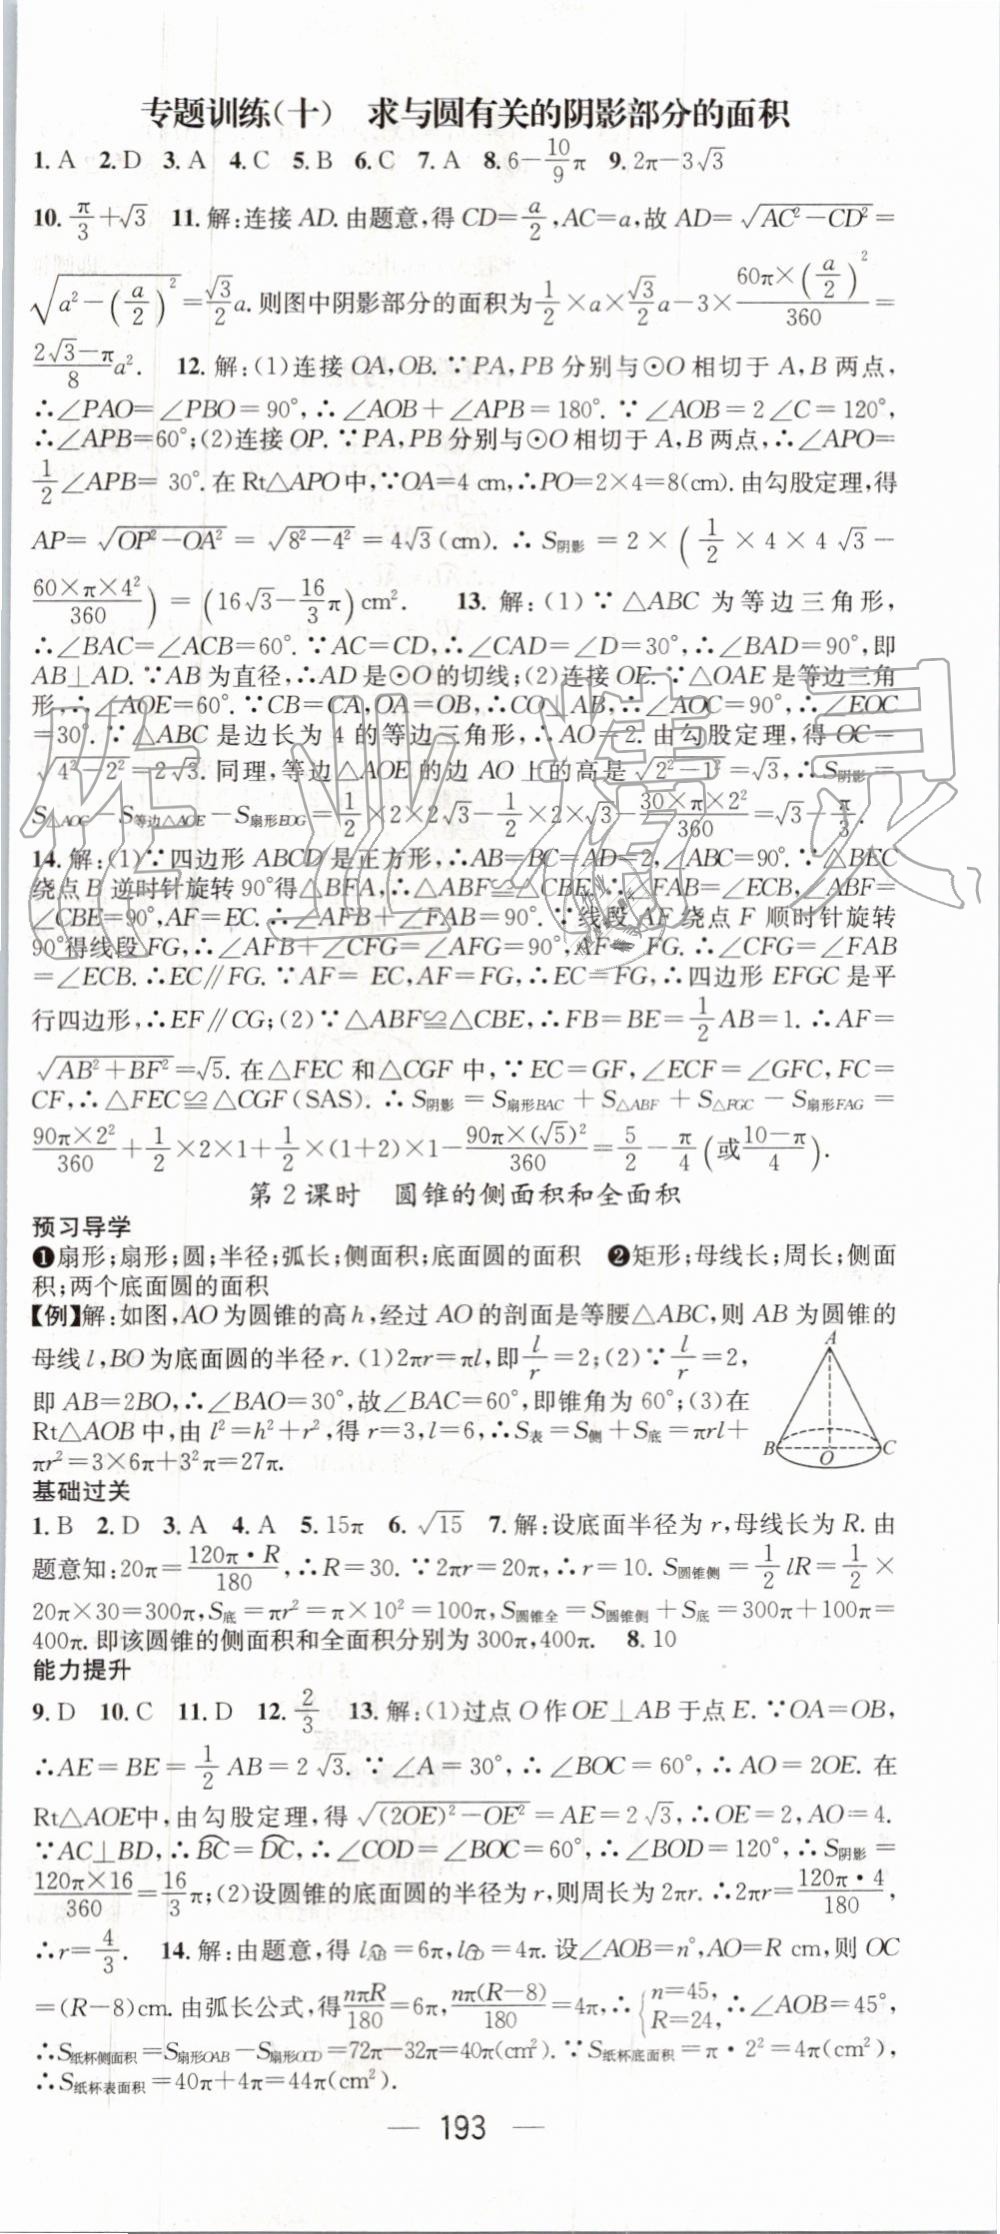 专题训练(十) 求与圆有关的阴影部分的面积
1. A 2. D 3. A 4. C 5. B 6. C 7. A 8. 6−10/9π 9. 2π−3√3
10. π/3+√3 11. 解:连接 AD. 由题意,得 CD=a/2,AC=a,故 AD=√(AC²−CD²)=
√(a²−(a/2)²)=√3/2a. 则图中阴影部分的面积为1/2×a×√3/2a−3×(60π×(a/2)²)/360=
(2√3−π)/8a². 12. 解:(1)连接 OA,OB. ∵PA,PB 分别与⊙O 相切于 A,B 两点,
∴∠PAO=∠PBO=90°,∴∠AOB+∠APB=180°. ∵∠AOB=2∠C=120°,
∴∠APB=60°;(2)连接 OP. ∵PA,PB 分别与⊙O 相切于 A,B 两点,∴∠APO=
1/2∠APB=30°. 在 Rt△APO 中,∵OA=4 cm,∴PO=2×4=8(cm). 由勾股定理,得
AP=√(OP²−OA²)=√(8²−4²)=4√3(cm). ∴S阴影=2×(1/2×4×4√3−
(60×π×4²)/360)=(16√3−16/3π)cm². 13. 解:(1)∵△ABC 为等边三角形,
∴∠BAC=∠ACB=60°. ∵AC=CD,∴∠CAD=∠D=30°,∴∠BAD=90°,即
AB⊥AD. ∵AB 为直径,∴AD 是⊙O 的切线;(2)连接 OE. ∵△OAE 是等边三角
形,∴∠AOE=60°. ∵CB=CA,OA=OB,∴CO⊥AB,∴∠AOC=90°,∴∠EOC
=30°. ∵△ABC 是边长为 4 的等边三角形,∴AO=2. 由勾股定理,得 OC=
√(4²−2²)=2√3. 同理,等边△AOE 的边 AO 上的高是√(2²−1²)=√3,∴S阴影=
S△AOC−S等边△AOE−S扇形EOG=1/2×2×2√3−1/2×2×√3−(30×π×2²)/360=√3−π/3.
14. 解:(1)∵四边形 ABCD 是正方形,∴AB=BC=AD=2,∠ABC=90°. ∵△BEC
绕点 B 逆时针旋转 90°得△BFA,∴△ABF≌△CBE,∴∠FAB=∠ECB,∠ABF=
∠CBE=90°,AF=EC. ∴∠AFB+∠FAB=90°. ∵线段 AF 绕点 F 顺时针旋转
90°得线段 FG,∴∠AFB+∠CFG=∠AFG=90°,AF=FG. ∴∠CFG=∠FAB
=∠ECB. ∴EC∥FG. ∵AF=EC,AF=FG,∴EC=FG,∴四边形 EFGC 是平
行四边形,∴EF∥CG;(2)∵△ABF≌△CBE,∴FB=BE=1/2AB=1. ∴AF=
√(AB²+BF²)=√5. 在△FEC 和△CGF 中,∵EC=GF,∠ECF=∠GFC,FC=
CF,∴△FEC≌△CGF(SAS). ∴S阴影=S扇形BAC+S△ABF+S△FGC−S扇形FAG=
(90π×2²)/360+1/2×2×1+1/2×(1+2)×1−(90π×(√5)²)/360=5/2−π/4(或(10−π)/4).
第 2 课时 圆锥的侧面积和全面积
预习导学
❶扇形;扇形;圆;半径;弧长;侧面积;底面圆的面积 ❷矩形;母线长;周长;侧面
积;两个底面圆的面积
【例】解:如图,AO 为圆锥的高 h,经过 AO 的剖面是等腰△ABC,则 AB 为圆锥的
母线 l,BO 为底面圆的半径 r. (1)2πr=πl,即l/r=2;(2)∵l/r=2,
即 AB=2BO,∴∠BAO=30°,故∠BAC=60°,即锥角为 60°;(3)在
Rt△AOB 中,由 l²=h²+r²,得 r=3,l=6,∴S表=S侧+S底=πrl+
πr²=3×6π+3²π=27π.
A
B
O
C
基础过关
1. B 2. D 3. A 4. A 5. 15π 6. √15 7. 解:设底面半径为 r,母线长为 R. 由
题意知:20π=(120π·R)/180,∴R=30. ∵2πr=20π,∴r=10. S圆锥侧=1/2lR=1/2×
20π×30=300π,S底=πr²=π×10²=100π,S圆锥全=S圆锥侧+S底=300π+100π=
400π. 即该圆锥的侧面积和全面积分别为 300π,400π. 8. 10
能力提升
9. D 10. C 11. D 12. 2/3 13. 解:(1)过点 O 作 OE⊥AB 于点 E. ∵OA=OB,
∴AE=BE=1/2AB=2√3. ∵∠A=30°,∴∠BOC=60°,∴AO=2OE. 在
Rt△AOE中,由勾股定理,得√((2OE)²−OE²)=AE=2√3,∴OE=2,AO=4.
∵AC⊥BD,∴B͡C=D͡C,∴∠COD=∠BOC=60°,∴∠BOD=120°,∴S阴影=
(120π×16)/360=16/3π;(2)设圆锥的底面圆的半径为 r,则周长为 2πr. ∴2πr=(120π·4)/180,
∴r=4/3. 14. 解:由题意,得 lA͡B=6π,lC͡D=4π. 设∠AOB=n°,AO=R cm,则 OC
=(R−8)cm. 由弧长公式,得nπR/180=6π,nπ(R−8)/180=4π,∴{n=45, R=24,∴∠AOB=45°,
∴S纸杯侧面积=S扇形OAB−S扇形OCD=72π−32π=40π(cm²). ∵S纸杯底面积=π·2²=4π(cm²),
∴S纸杯表面积=40π+4π=44π(cm²).
— 193 —
作业精灵